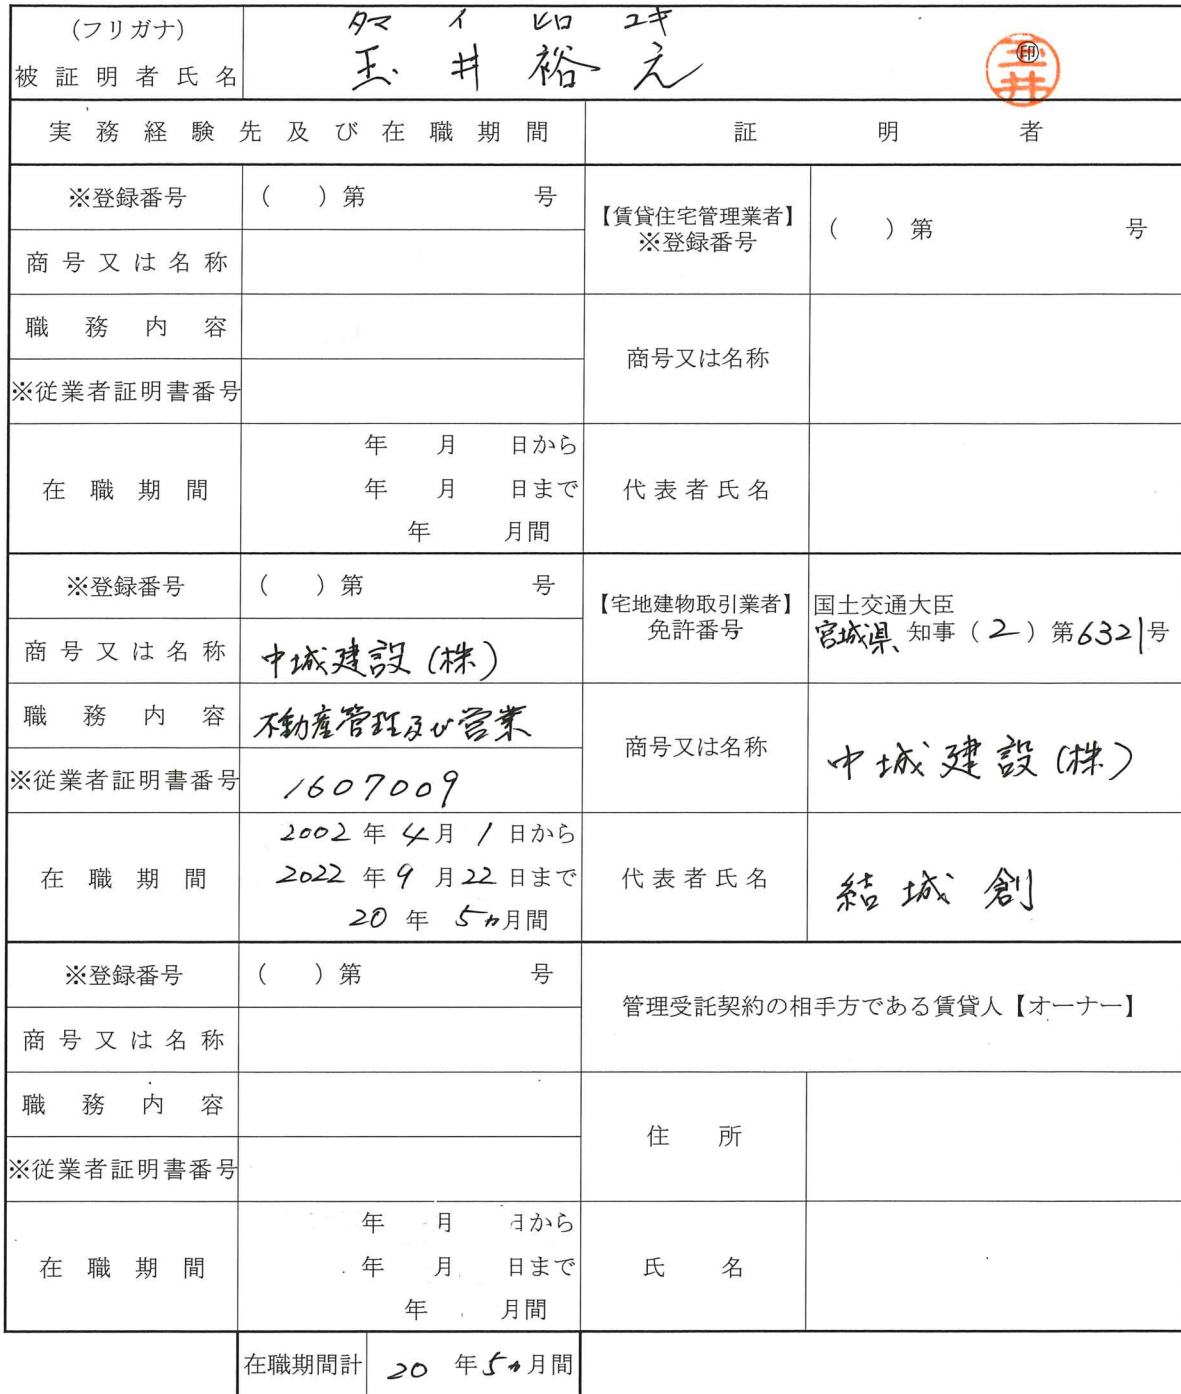 (フリガナ) タマ イ ヒロ ユキ
被証明者氏名 玉井裕之 ㊞ 玉井
実務経験先及び在職期間 証明者
※登録番号 ( )第 号
【賃貸住宅管理業者】
※登録番号 ( )第 号
商号又は名称
職務内容
商号又は名称
※従業者証明書番号
在職期間
年 月 日から
年 月 日まで
年 月間
代表者氏名
※登録番号 ( )第 号
【宅地建物取引業者】
免許番号
国土交通大臣
宮城県 知事(2)第6321号
商号又は名称 中城建設(株)
職務内容 不動産管理及び営業
商号又は名称 中城建設(株)
※従業者証明書番号 1607009
在職期間
2002年4月1日から
2022年9月22日まで
20年5ヵ月間
代表者氏名 結城 創
※登録番号 ( )第 号
管理受託契約の相手方である賃貸人【オーナー】
商号又は名称
職務内容
住所
※従業者証明書番号
在職期間
年 月 日から
年 月 日まで
年 月間
氏名
在職期間計 20年5ヵ月間